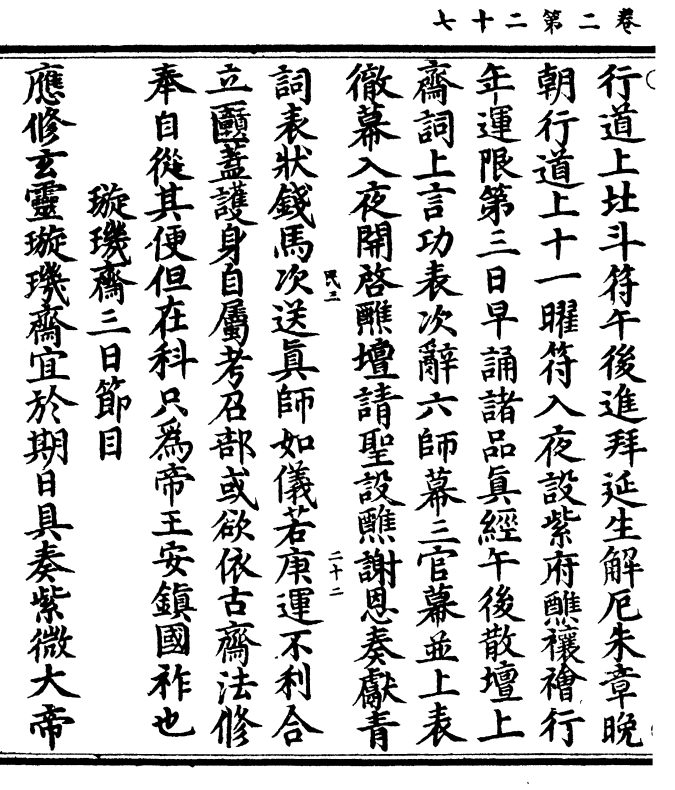 卷二第二十七
行道上北斗符午後進拜延生解厄朱章晚
朝行道上十一曜符入夜設紫府醮禳禬行
年運限第三日早誦諸品眞經午後散壇上
齋詞上言功表次辭六師幕三官幕並上表
徹幕入夜開啓醮壇請聖設醮謝恩奏獻青
詞表狀錢馬次送眞師如儀若庚運不利合
民三
二十二
立 蓋護身自屬考召部或欲依古齋法修
奉自從其便但在科只爲帝王安鎮國祚也
璇璣齋三日節目
應修玄靈璇璣齋宜於期日具奏紫微大帝